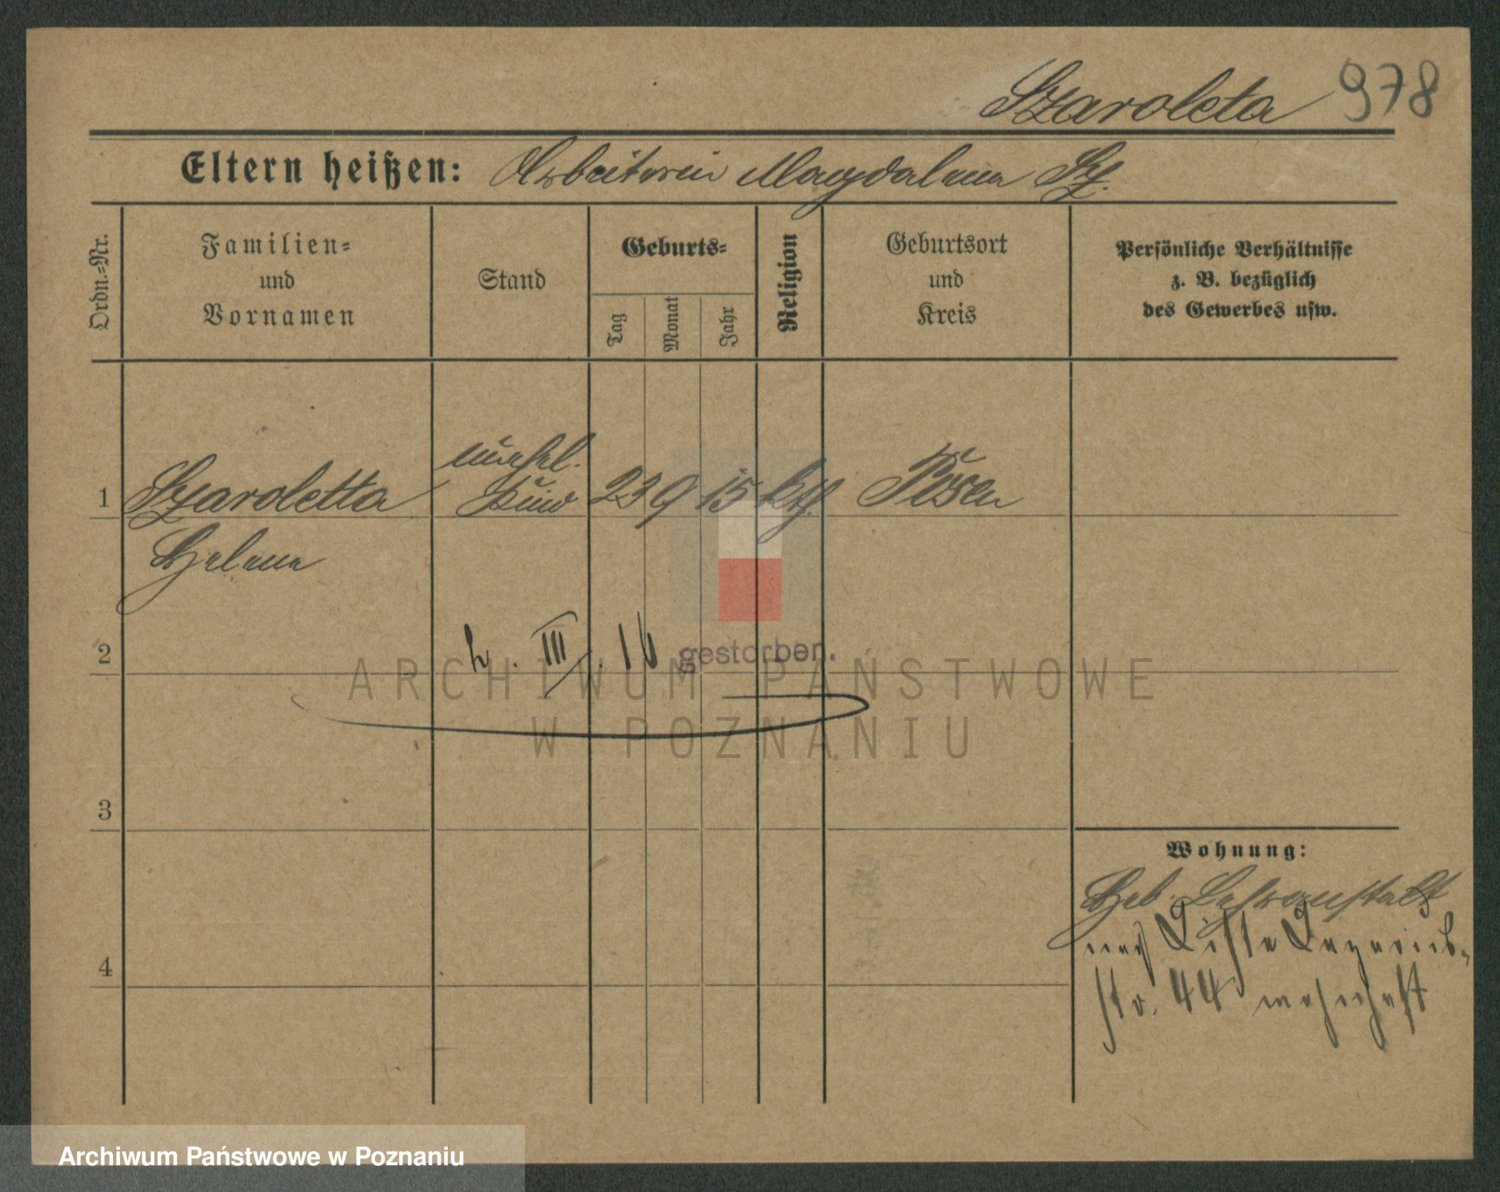 Szaroleta 978
Eltern heißen: Arbeiterin Magdalena Sz.
Ordn.=Nr.
Familien=
und
Vornamen
Stand
Geburts=
Tag
Monat
Jahr
Religion
Geburtsort
und
Kreis
Persönliche Verhältnisse
z. B. bezüglich
des Gewerbes usw.
1 Szaroletta unehel. Kind 23 9 15 kth. Posen
Helena
2 III. 16 gestorben.
ARCHIWUM PAŃSTWOWE
W POZNANIU
3
Wohnung:
Heb. Lehranstalt
nach Liste
4
str. 44 wohnhaft
Archiwum Państwowe w Poznaniu